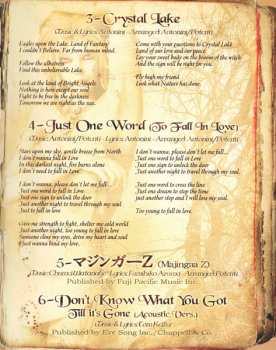 3-Crystal Lake
(Music & Lyrics Antonini - Arranged Antonini/Potenti)
Eagles upon the Lake, Land of Fantasy
I couldn't Believe, Far from human mind.
Follow the albatross
Find this unbelievable Lake.
Look at the land of Bright Angels
Nothing is here except our soul
Fight to be free in the darkness
Tomorrow we are night as the sun.
Come with your questions to Crystal Lake
Land of our love and our peace
Lay your sweet body on the bloom of the witch
And the sign will be right for you.
Fly high my friend
Look what Nature has done.
4-Just One Word (To Fall In Love)
(Music Antonini/Potenti - Lyrics Antonini - Arranged Antonini/Potenti)
Stars upon my sky, gentle breeze from North
I don't wanna fall in Love
In this darkest night, fire burns alone
I don't need to fall in Love
I don't wanna, please don't let me fall...
Just me word to fall in Love
Just me sign to unlock the door
Just another night to travel through my soul
Just to fall in love
Give me strength to fight, shelter me cold world
Another night, too young to fall in love
Someone close my eyes, drive my heart and soul
I just wanna bind my love.
I don't wanna, please don't let me fall...
Just me word to Love
Just me sign to unlock the door
Just another night to travel through my soul.
Just me word to cross the time
Just me dream to stop the time
just another step and I will lose my soul.
Too young to fall in love.
5-マジンガーZ (Majingaa Z)
Published by Fuji Pacific Music Inc.
6-Don't Know What You Got
Till it's Gone (Acoustic Vers.)
(Music & Lyrics Tom Keifer)
Published by Eve Song Inc./Chappell & Co.